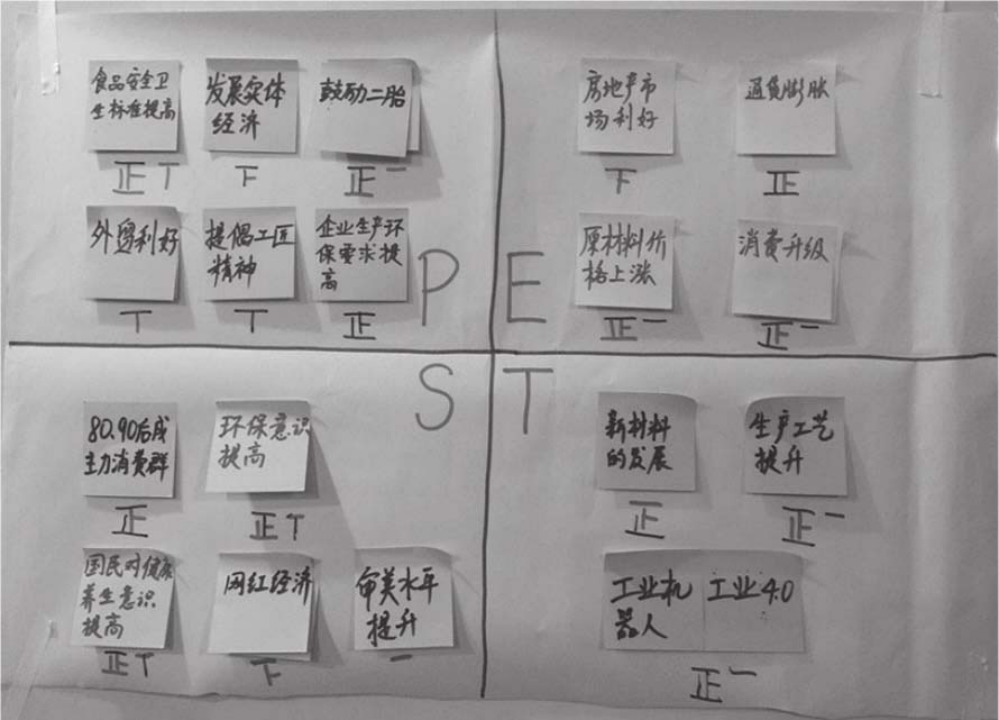 食品安全卫
生标准提高
正T
发展实体
经济
下
鼓励二胎
正一
外贸利好
T
提倡工匠
精神
T
企业生产环
保要求提
高
正
P
房地产市
场利好
下
通货膨胀
正
原材料价
格上涨
正一
消费升级
正一
E
80.90后成
主力消费群
正
环保意识
提高
正T
国民对健康
养生意识
提高
正T
网红经济
下
审美水平
提升
一
S
新材料
的发展
正
生产工艺
提升
正一
工业机
器人
工业4.0
正一
T